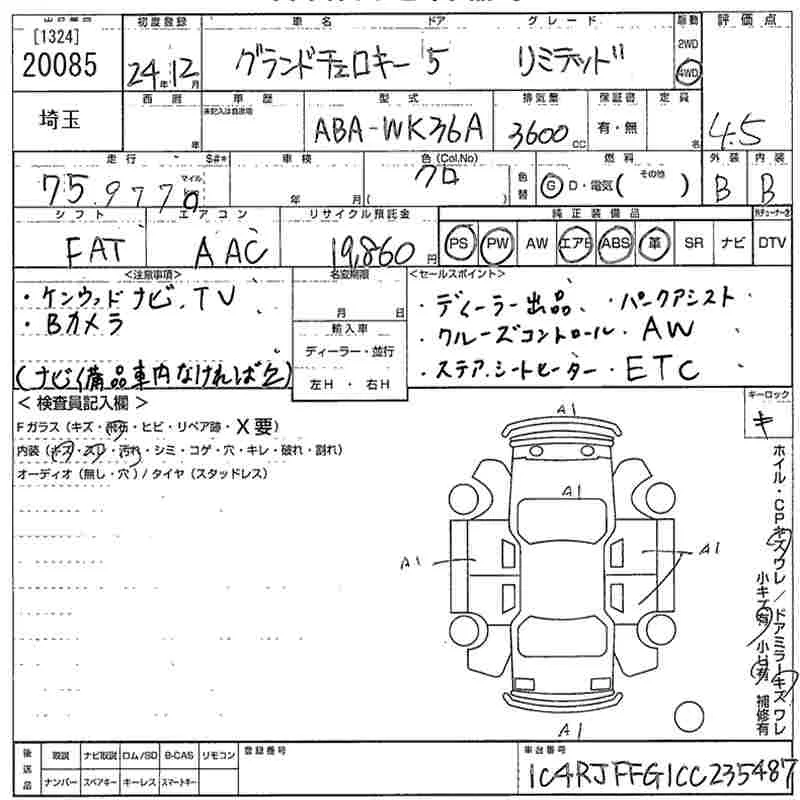 [1324]
20085
初度登録 車名 ドア グレード 駆動 評価点
24年12月 グランドチェロキー 5 リミテッド 2WD 4WD
埼玉
車歴 型式 排気量 保証書 定員
未記入は自家用
年 ABA-WK36A 3600cc 有・無 名 4.5
走行 S#* 車検 色(Col.No) 燃料 外装 内装
75,977 マイル 年 月 クロ ( ) 色替 G D・電気( その他 ) B B
シフト エアコン リサイクル預託金 純正装備品
FAT AAC 19,860円 PS PW AW エアB ABS 革 SR ナビ DTV
<注意事項> 名変期限 <セールスポイント>
・ケンウッドナビ、TV 月 日 ・ディーラー出品、・パークアシスト
・Bカメラ 輸入車 ・クルーズコントロール・AW
ディーラー・並行 ・ステア、シートヒーター・ETC
(ナビ備品車内なければ欠) 左H・右H
<検査員記入欄> キーロック
キ
Fガラス(キズ・飛石・ヒビ・リペア跡・X要)
内装(キズ・スレ・汚れ・シミ・コゲ・穴・キレ・破れ・割れ)
オーディオ(無し・穴)/タイヤ(スタッドレス)
A1
A1
A1 A1
A1
ホイル・CPキズワレ/ドアミラーキズワレ
小キズ有 小凹有 補修有
後送品 取説 ナビ取説 ロム/SD B-CAS リモコン 登録番号 車台番号
ナンバー スペアキー キーレス スマートキー 1C4RJFFG1CC235487